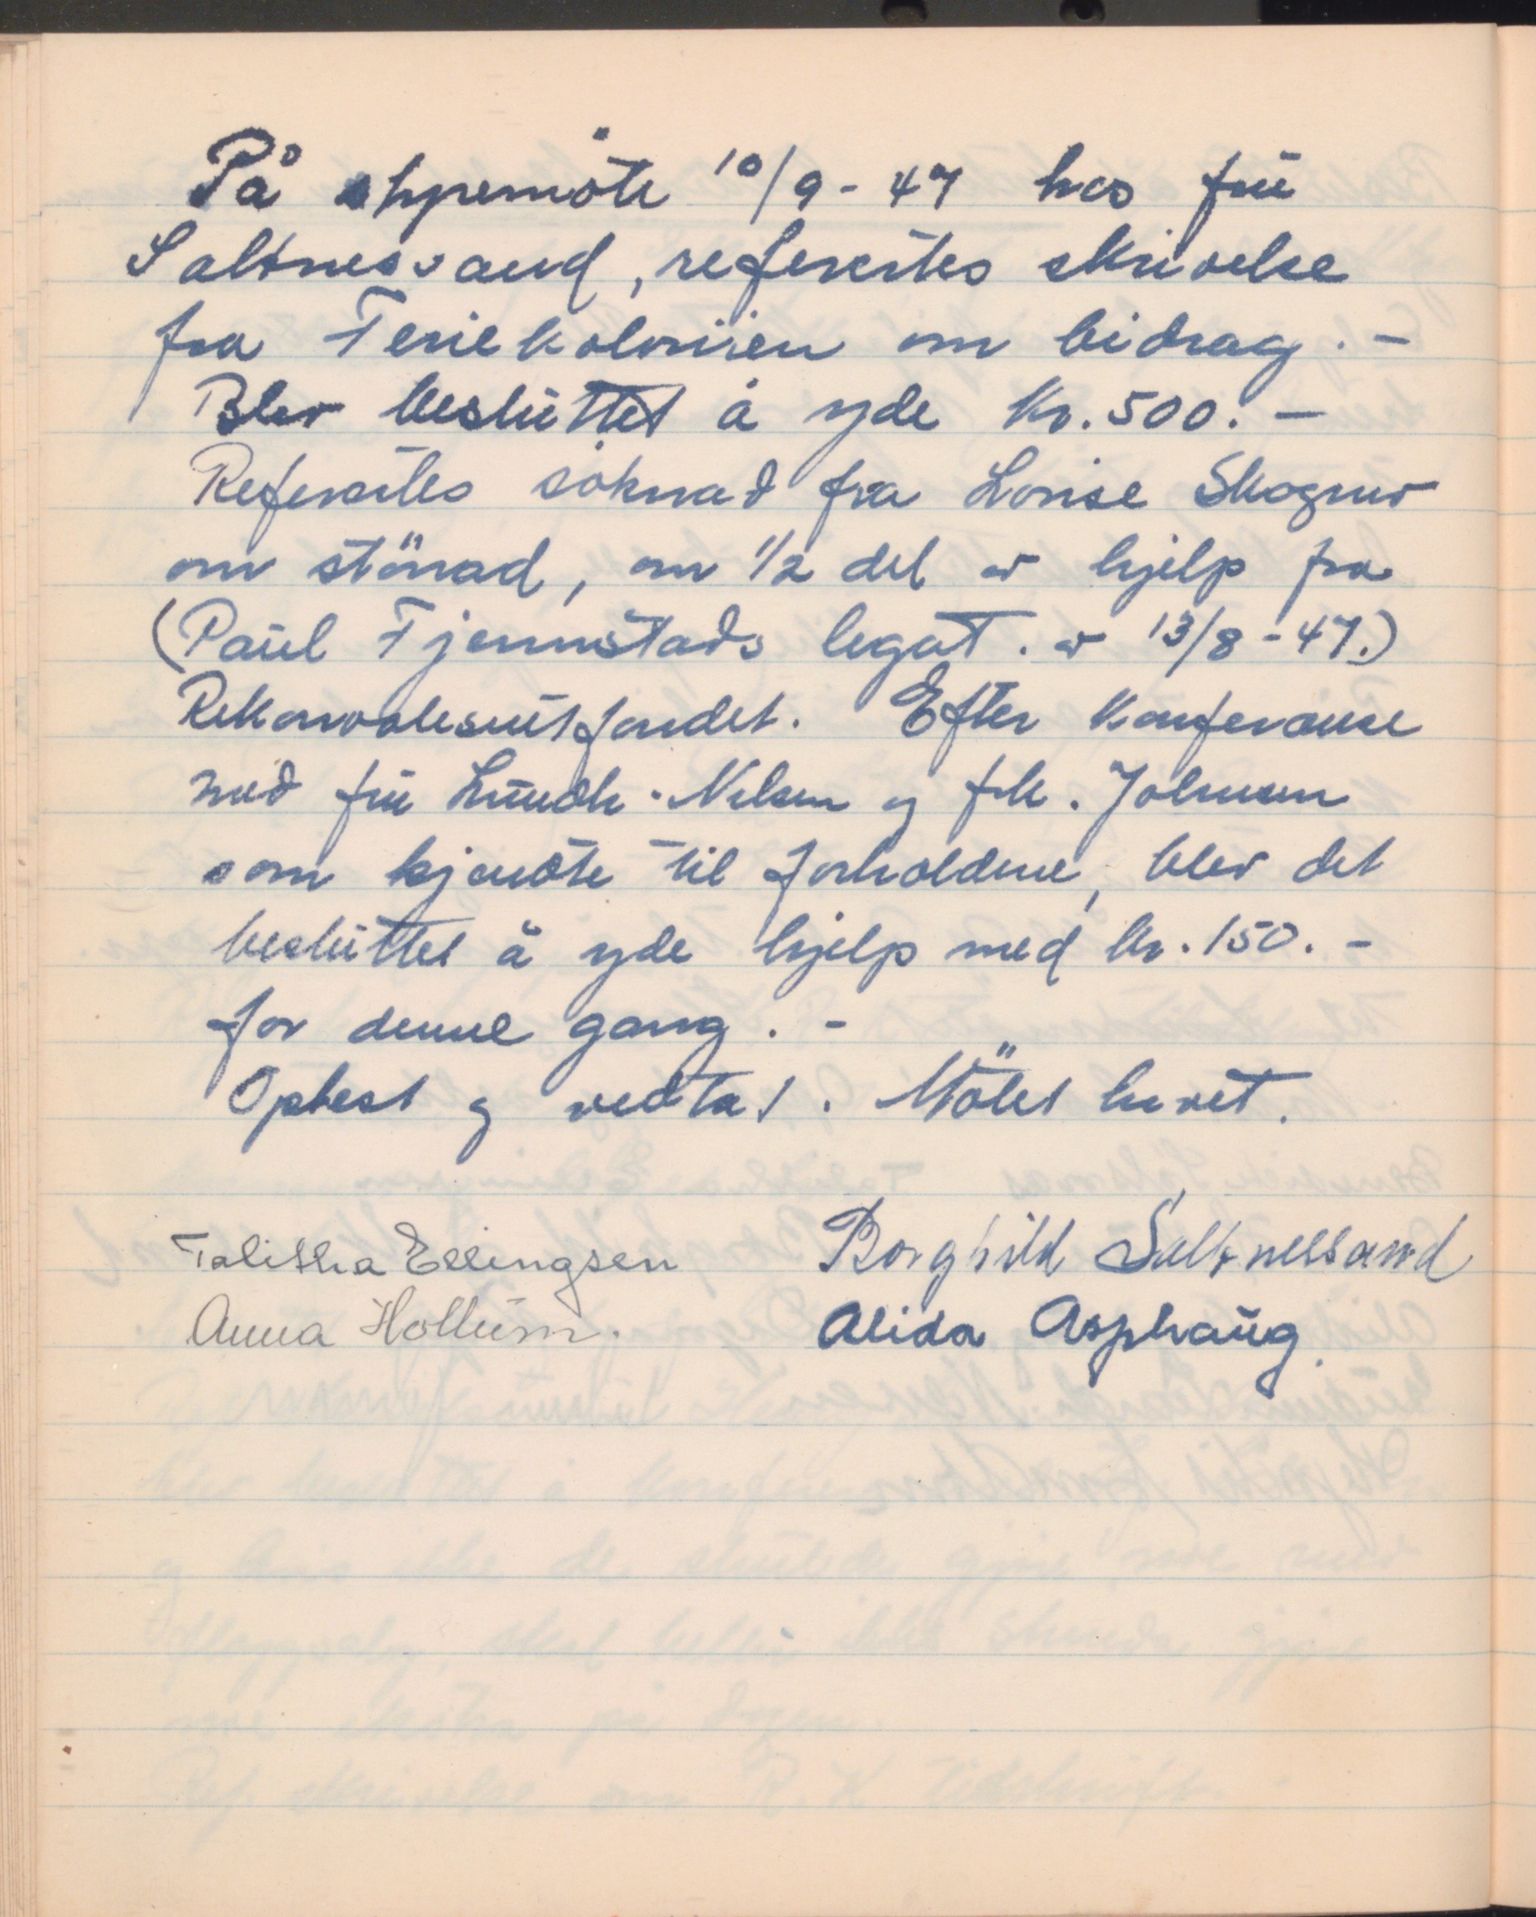 På styremöte 10/9 - 47 hos frü
Saltnessand, refererites skrivelse
fra Feriekolonien om bidrag. -
Blev beslüttet å yde Kr. 500. -
Refererites söknad fra Lovise
om stönad, om 1/2 del av hjelp fra
(Paül Tjernstads legat. av 13/8 - 47.)
Rekonvalesentfondet. Efter Konferanse
med frü Lündh-Nilsen og frk. Johnsen
som kjendte til forholdene, blev det
beslüttet å yde hjelp med kr. 150. -
for denne gang. -
Oplest og vedtat. Mötet hevet.
Talitha Ellingsen Borghild Saltnessand
Anna Hollüm. Alida Asphaüg.